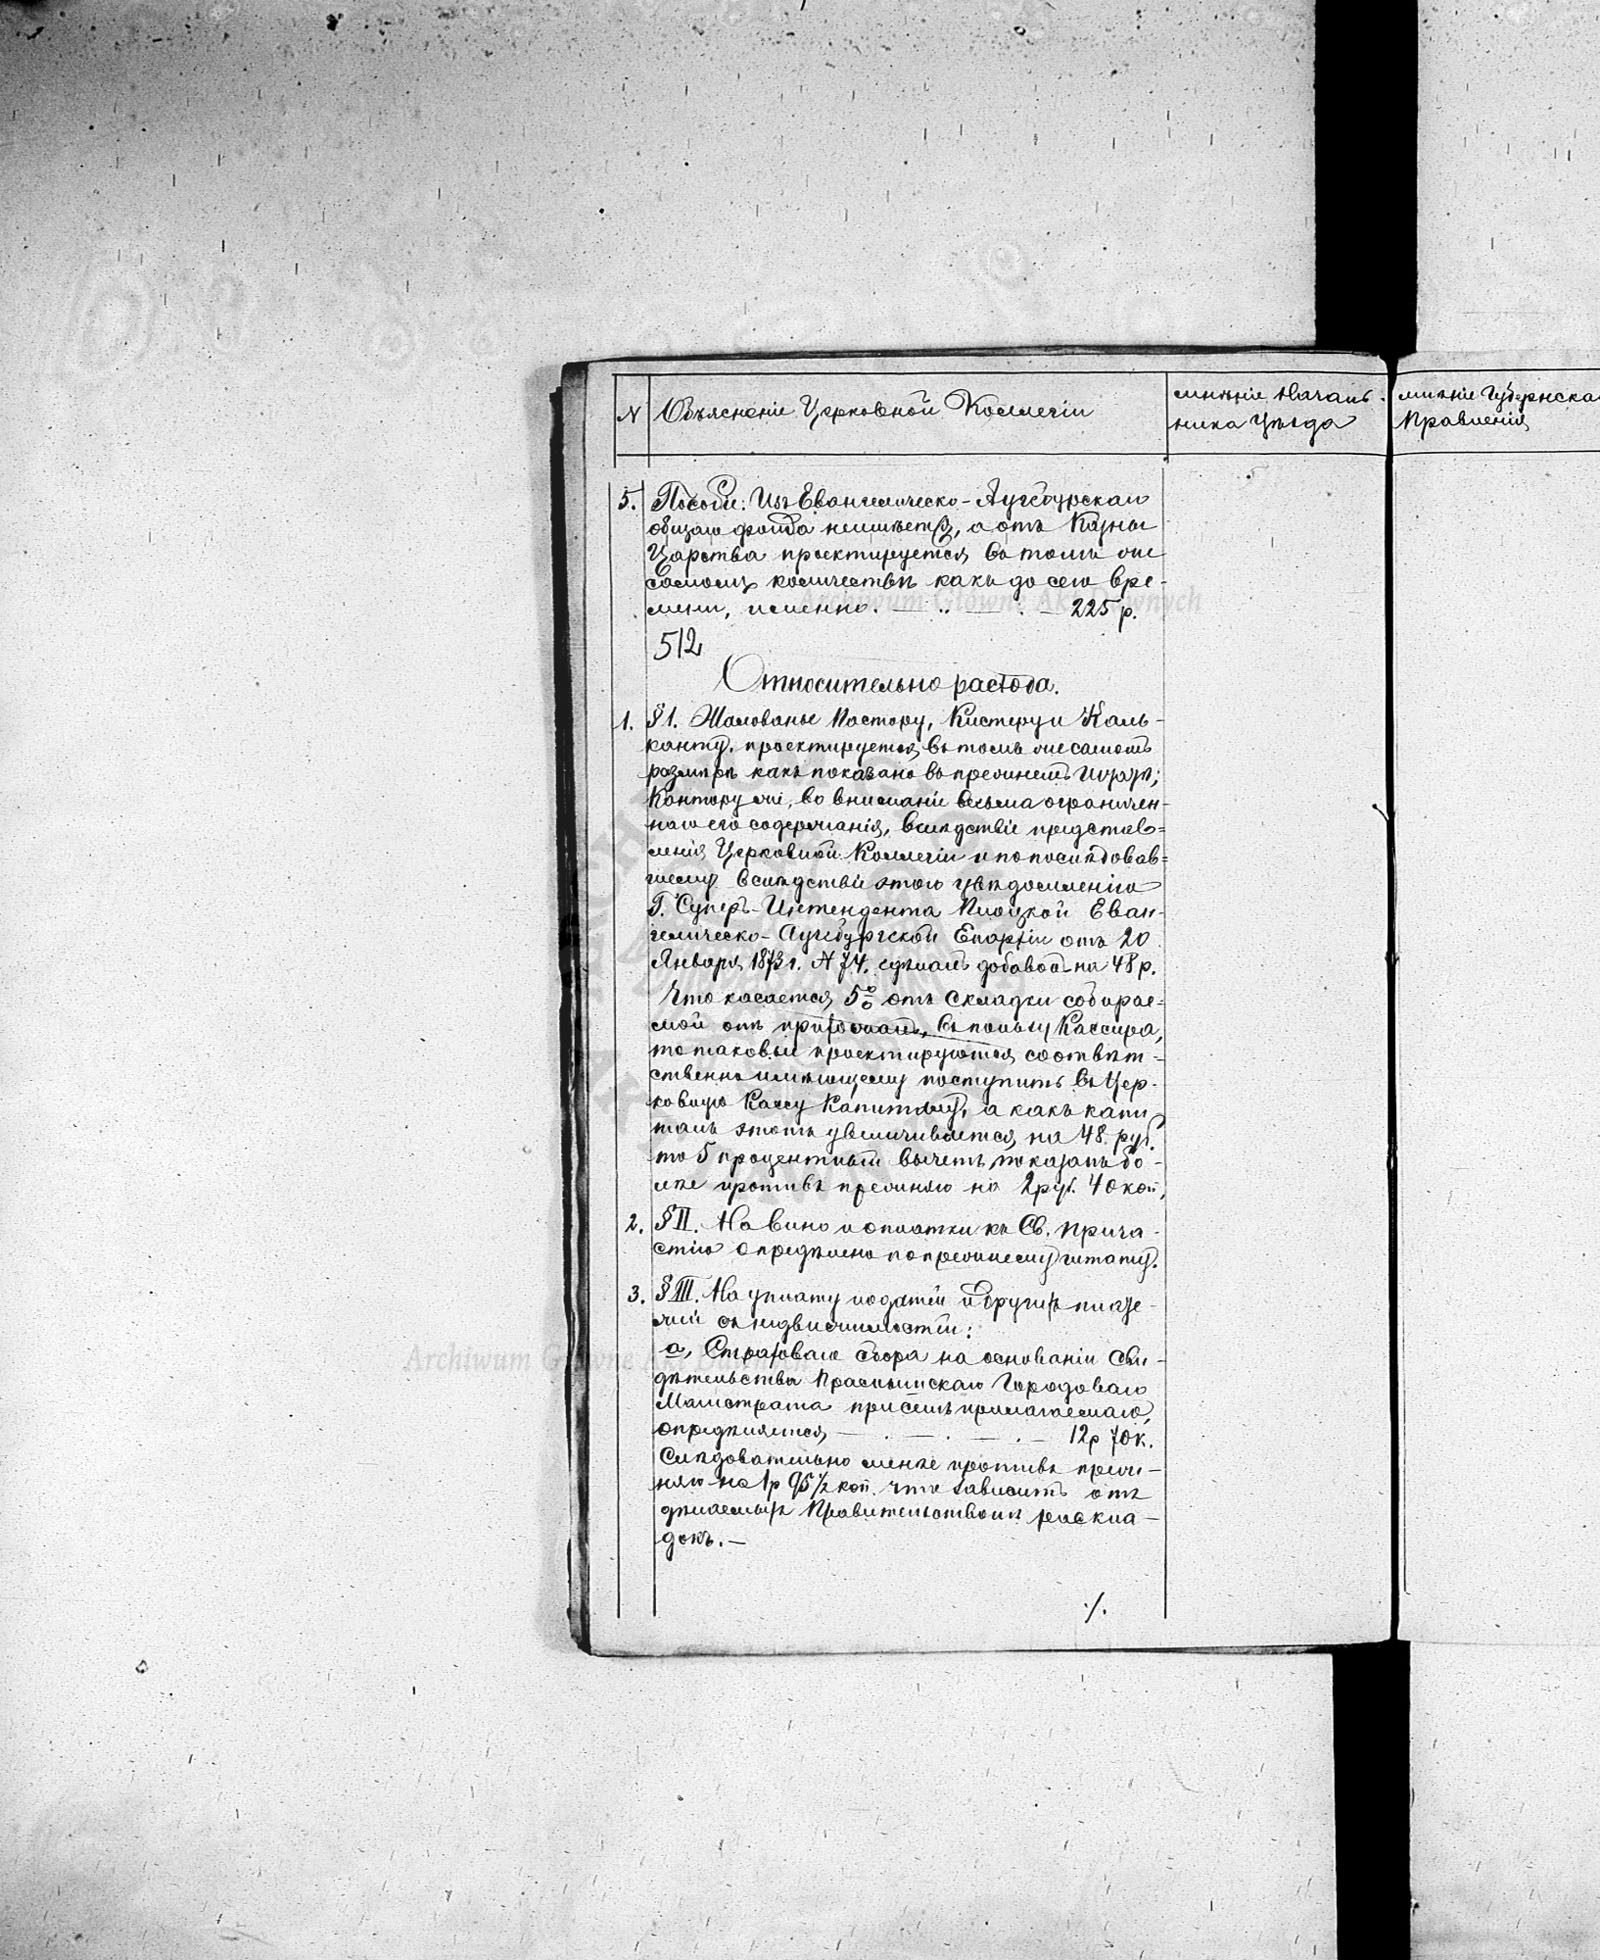 N Объясненіе Церковной Коллегіи
мнѣніе Началь-
ника Уѣзда
мнѣніе Губернска
Правленія
5. Пособіе: Изъ Евангелическо-Аугсбургскаго
общаго фонда неимѣется, а отъ Казны
Царства проектируется въ томъ же
самомъ количествѣ какъ до сего вре-
мени, именно. — „ — . — 225 р.
512
Относительно расхода.
1. § 1. Жалованье Пастору, Кистеру и Каль-
канту, проектируется въ томъ же самомъ
размѣрѣ какъ показано въ прежнемъ
Кантору же, во вниманіе весьма ограничен-
наго его содержанія, вслѣдствіе представ=
ленія Церковной Коллегіи и по послѣдовав=
шему вслѣдствіе этого увѣдомленію
Г. Суперъ-Интендента Плоцкой Еван-
гелическо-Аугсбургской Епархіи отъ 20
Января 1873 г. N 74. сдѣланъ добавокъ на 48 р.
Что касается 5% отъ складки собирае=
мой отъ прихожанъ, въ пользу Кассира,
то таковые проектируются соотвѣт=
ственно имѣющему поступить въ Цер-
ковную Кассу Капиталу, а какъ капи
талъ этотъ увеличивается на 48. руб.
то 5 процентный вычетъ показанъ бо-
лѣе противъ прежняго на 2 руб. 40 коп.
2. § II. На вино и оплатки къ Св. Прича-
стію опредѣлено по прежнему штату.
3. § III. На уплату податей и другихъ плате-
жей съ недвижимостей:
а, Страховаго сбора на основаніи сви-
дѣтельства Праснышскаго Городоваго
Магистрата при семъ прилагаемаго,
опредѣляется — . — . — . — 12 р 70 к.
Слѣдовательно менѣе противъ преж-
няго на 1 р 95 1/2 коп. что зависитъ отъ
дѣлаемыхъ Правительствомъ раскла-
докъ. —
./.
Archiwum Główne Akt Dawnych
Archiwum Główne Akt Dawnych